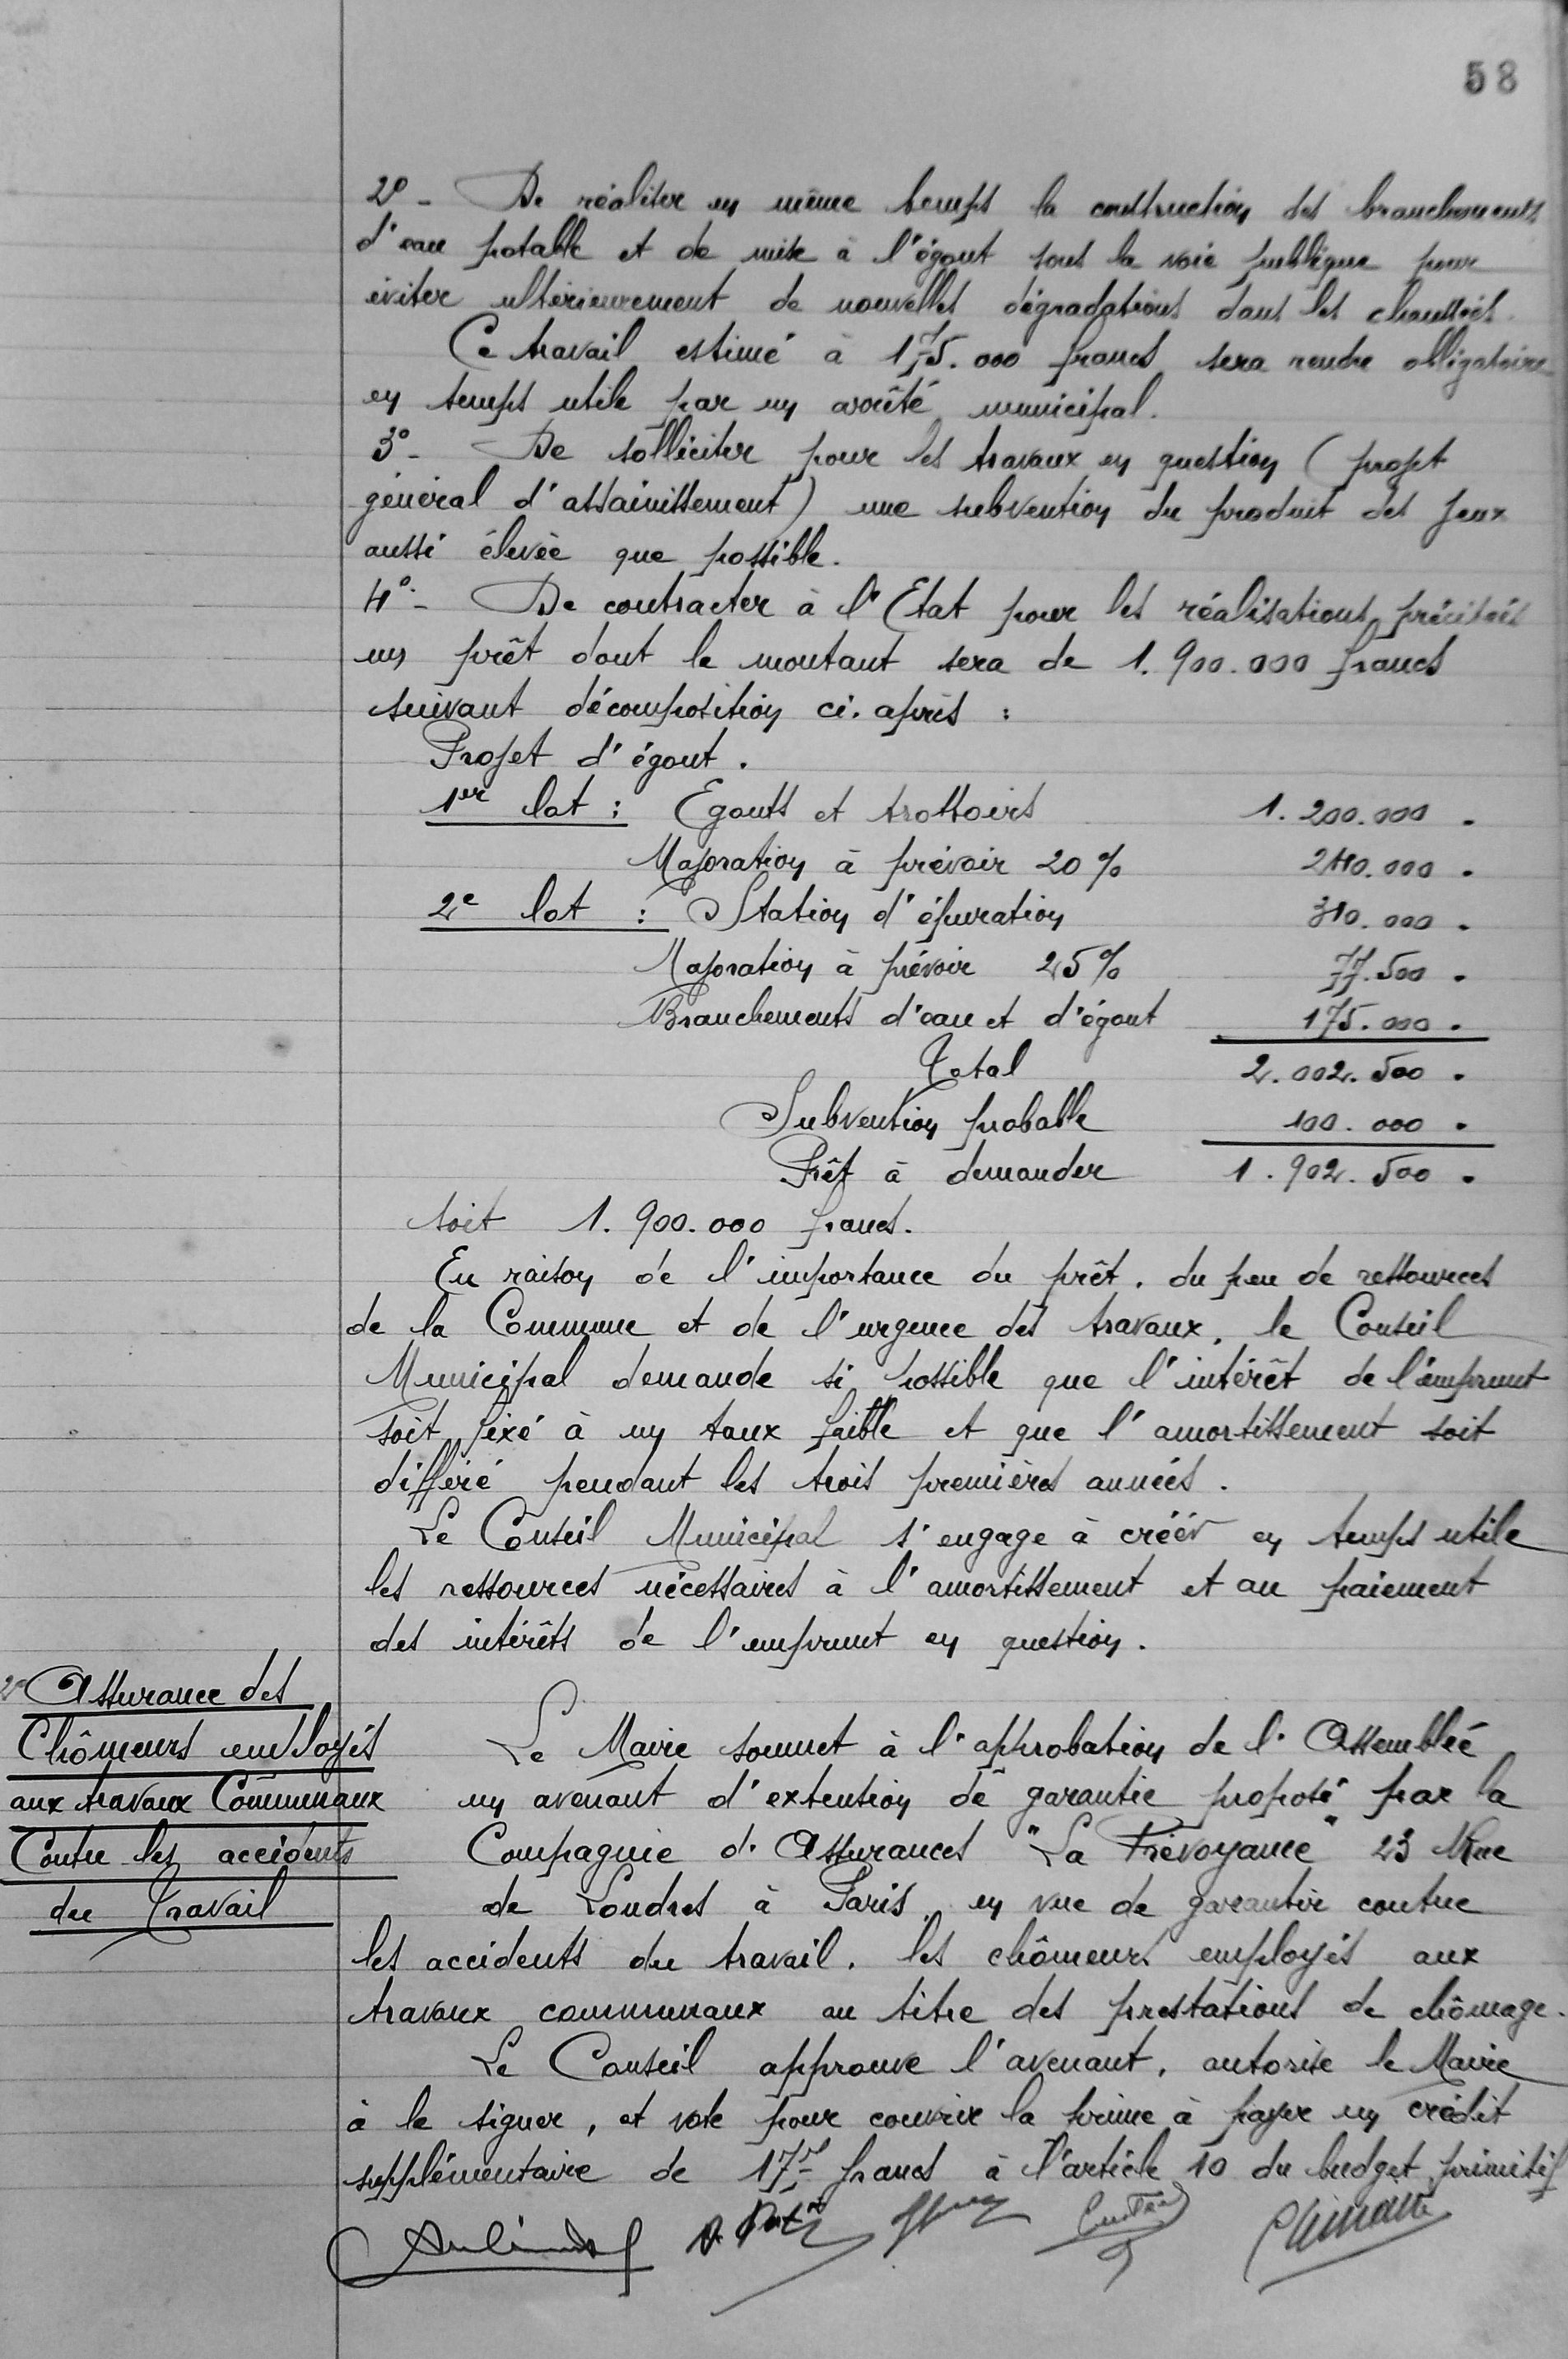 58
2° - De réaliser en même temps la construction des branchements
d'eau potable et de mise à l'égout sous la voie publique pour
éviter ultérieurement de nouvelles dégradations dans les chaussées.
Ce travail estimé à 175.000 francs sera rendre obligatoire
en temps utile par un arrêté municipal.
3° - De solliciter pour les travaux en question (projet
général d'assainissement) une subvention du produit des jeux
aussi élevée que possible.
4° - De contracter à l'Etat pour les réalisations précitées
un prêt dont le montant sera de 1.900.000 francs
suivant décomposition ci-après :
Projet d'égout.
1er lot : Egouts et trottoirs 1.200.000 .
Majoration à prévoir 20 % 240.000 .
2e lot : Station d'épuration 310.000 .
Majoration à prévoir 25 % 77.500 .
Branchements d'eau et d'égout 175.000 .
Total 2.002.500 .
Subvention probable 100.000 .
Prêt à demander 1.902.500 .
soit 1.900.000 francs.
En raison de l'importance du prêt, du peu de ressources
de la Commune et de l'urgence des travaux, le Conseil
Municipal demande si possible que l'intérêt de l'emprunt
soit fixé à un taux faible et que l'amortissement soit
différé pendant les trois premières années.
Le Conseil Municipal s'engage à créer en temps utile
les ressources nécessaires à l'amortissement et au paiement
des intérêts de l'emprunt en question.
2° Assurance des
Chômeurs employés
aux travaux Communaux
Contre les accidents
du Travail
Le Maire soumet à l'approbation de l'Assemblée
un avenant d'extention de garantie proposé par la
Compagnie d'Assurances "La Prévoyance" 23 Rue
de Londres à Paris, en vue de garantir contre
les accidents du travail, les chômeurs employés aux
travaux communaux au titre des prestations de chômage.
Le Conseil approuve l'avenant, autorise le Maire
à le signer, et vote pour couvrir la prime à payer un crédit
supplémentaire de francs à l'article 10 du budget primitif